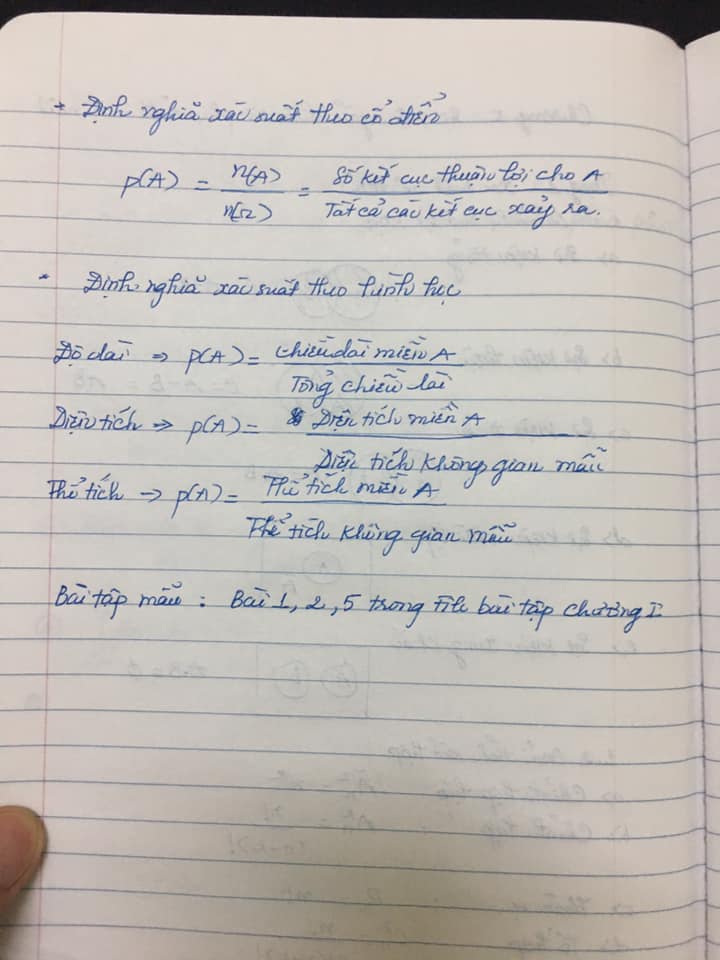 → Định nghĩa xác suất theo cổ điển
p(A) = n(A) / n(Ω) = Số kết cục thuận lợi cho A / Tất cả các kết cục xảy ra.
- Định nghĩa xác suất theo hình học
Độ dài ⇒ p(A) = Chiều dài miền A / Tổng chiều dài
Diện tích ⇒ p(A) = Diện tích miền A / Diện tích không gian mẫu
Thể tích → p(A) = Thể tích miền A / Thể tích không gian mẫu
Bài tập mẫu : Bài 1, 2, 5 trong file bài tập chương I